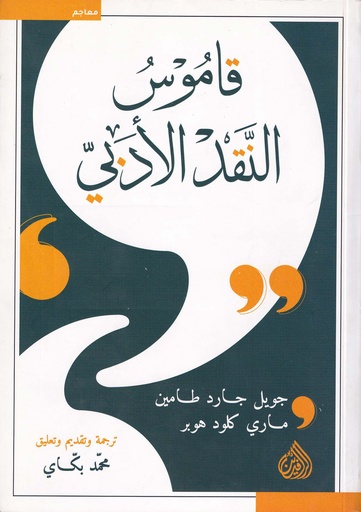 معاجم
قاموُسُ
النَّقْد الأَدَبيّ
جويل جارد طامين
ماري كلود هوبر
ترجمة وتقديم وتعليق
محمّد بكّاي
الرافدين